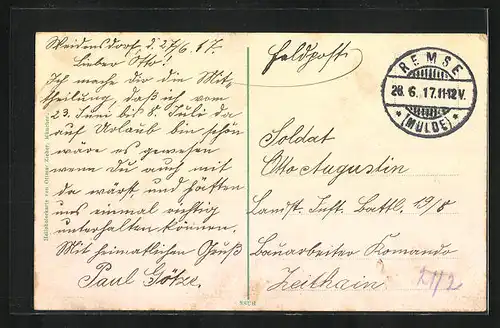 Weidensdorf, d. 27/6. 17.
Lieber Otto!
Ich mache dir die Mit-
theilung, daß ich vom
23. Juni bis 8. Juli da
auf Urlaub bin schön
wäre es gewesen
wenn Du auch mit
da wärst, und hätten
uns einmal richtig
unterhalten können.
Mit heimatlichen Gruß
Paul Götze.
Feldpost
REMSE
28. 6. 17. 11-12 V.
* (MULDE) *
Soldat
Otto Augustin
Landst. Inft. Battl. 19/8
Bauarbeiter Komando
Zeithain
21/2